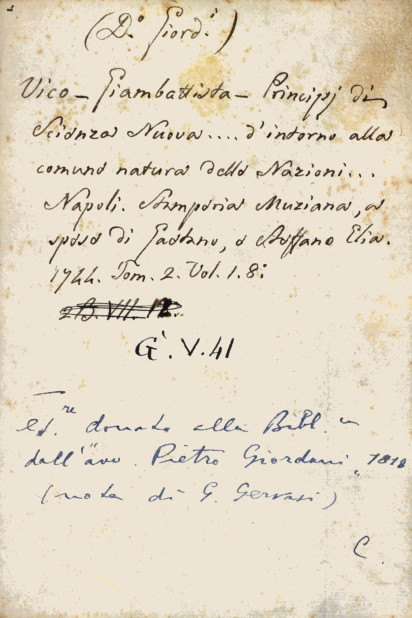 (D.º Giord.i)
Vico - Giambattista - Principj di
Scienza Nuova.... d'intorno alla
comune natura delle Nazioni...
Napoli. Stamperia Muziana, a
spese di Gaetano, e Steffano Elia.
1744. Tom. 2. Vol. 1. 8:
2 B. VII. 12.
G. V. 41
donato alla Bibl.
dall'avv. Pietro Giordani 1818
(nota di G. Gervasi)
C.